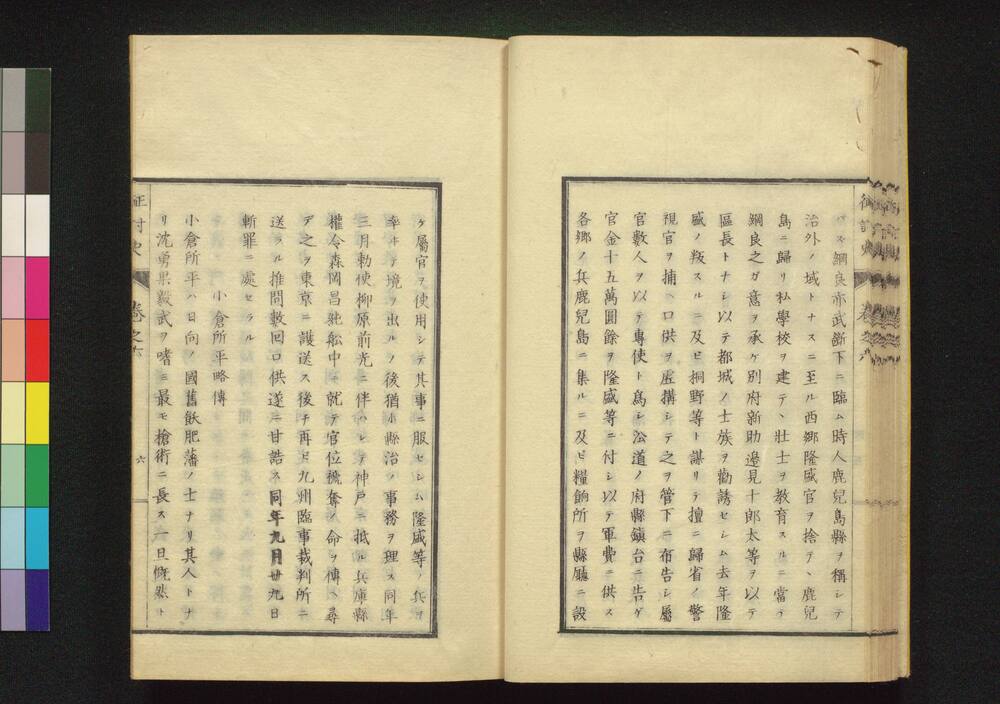 バス綱良亦武斷下ニ臨ム時人鹿兒島縣ヲ稱シテ
治外ノ域トナスニ至ル西郷隆盛官ヲ捨テヽ鹿兒
島ニ歸リ私學校ヲ建テヽ壯士ヲ教育スルニ當テ
綱良之ガ意ヲ承ケ別府新助邉見十郎太等ヲ以テ
區長トナシ以テ都城ノ士族ヲ勸誘セシム去年隆
盛ノ叛スルニ及ビ桐野等ト謀リテ擅ニ歸省ノ警
視官ヲ捕ヘ口供ヲ虚搆シテ之ヲ管下ニ布告シ屬
官數人ヲ以テ專使ト爲シ沿道ノ府縣鎭台ニ告ゲ
官金十五萬圓餘ヲ隆盛等ニ付シ以テ軍費ニ供ス
各郷ノ兵鹿兒島ニ集ルニ及ビ糧餉所ヲ縣廳ニ設
ケ屬官ヲ使用シテ其事ニ服セシム隆盛等ノ兵ヲ
率ヰテ境ヲ出ルノ後猶ホ縣治ノ事務ヲ理ス同年
三月勅使柳原前光ニ伴ハレテ神戸ニ抵ル兵庫縣
權令森岡昌純舩中ニ就テ官位褫奪ノ命ヲ傳ヘ尋
デ之ヲ東京ニ護送ス後チ再ビ九州臨事裁判所ニ
送ラル推問數回口供遂ニ甘誥ス同年九月廿九日
斬罪ニ處セラル
小倉所平略傳
小倉所平ハ日向ノ國舊飫肥藩ノ士ナリ其人トナ
リ沈勇果毅武ヲ嗜ミ最モ槍術ニ長ス一旦慨然ト
征討史
卷之六
六